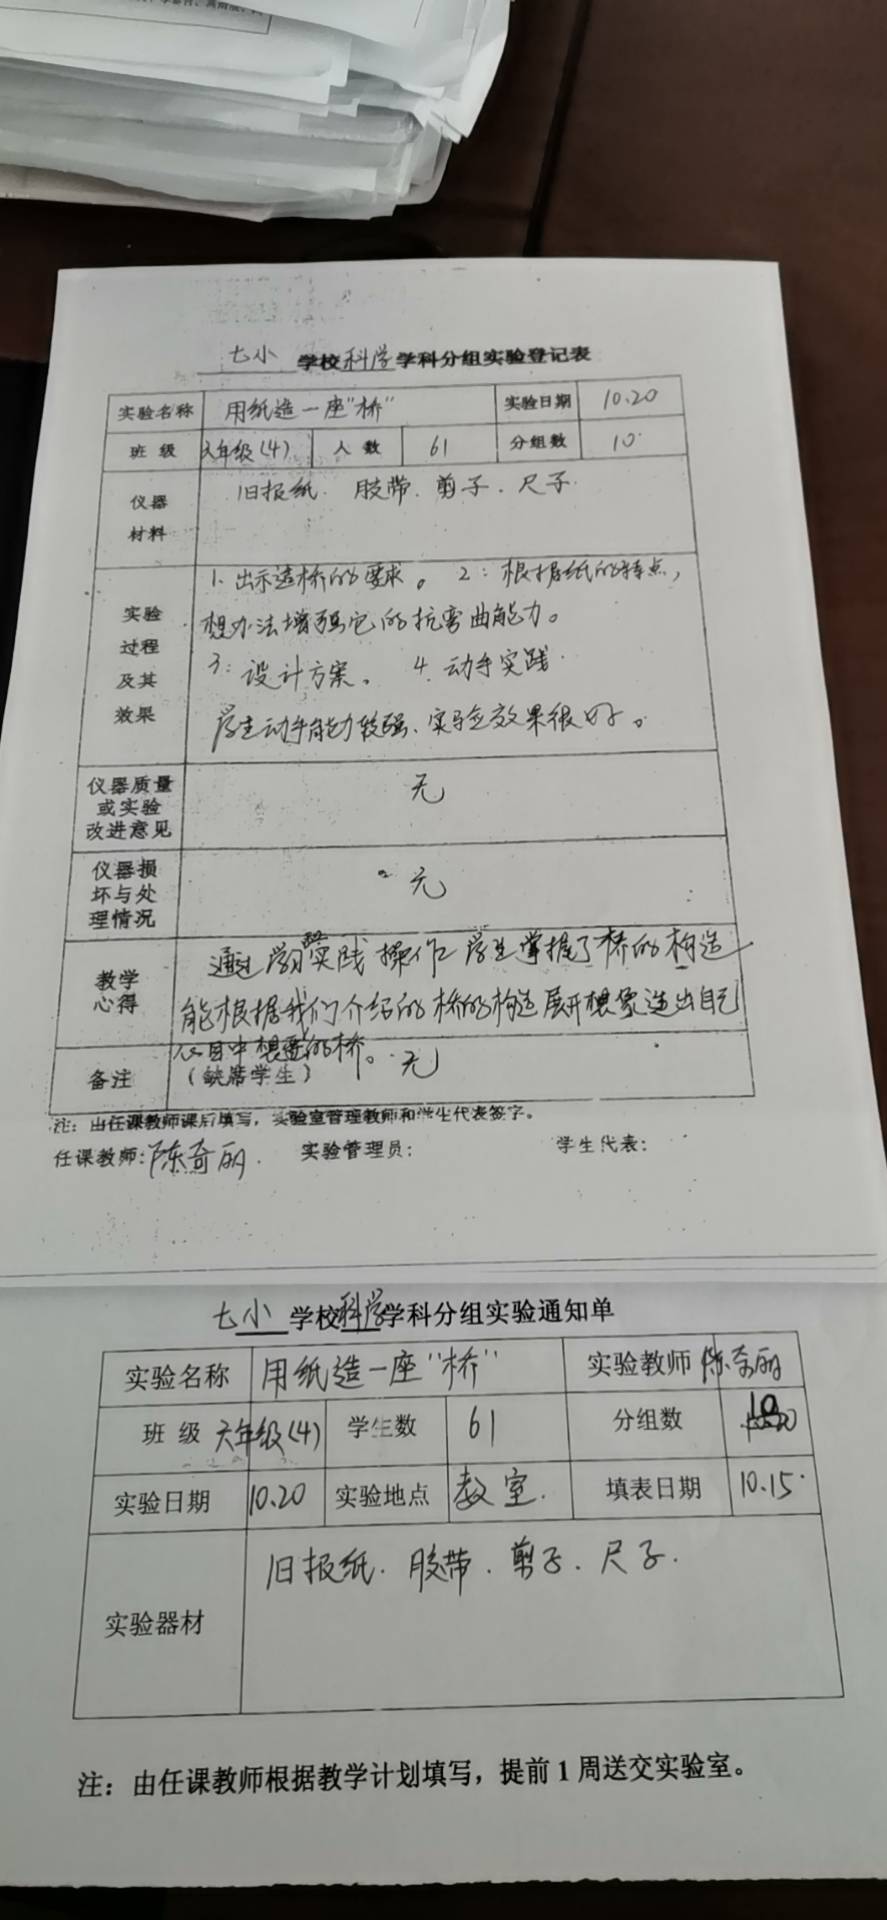 七小 学校科学学科分组实验登记表
实验名称 用纸造一座"桥" 实验日期 10.20
班 级 六年级(4) 人 数 61 分组数 10
仪器材料 旧报纸. 胶带. 剪子. 尺子.
实验过程及其效果
1. 出示造桥的要求。 2: 根据纸的特点,
想办法增强它的抗弯曲能力。
3: 设计方案。 4. 动手实践.
学生动手能力较强、实验效果很好。
仪器质量或实验改进意见 无
仪器损坏与处理情况 无
教学心得
通过学习实践 操作 学生掌握了桥的构造
能根据我们介绍的桥的构造展开想象造出自己
心目中想要的桥。
备注 (缺席学生) 无
注: 由任课教师课后填写, 实验室管理教师和学生代表签字。
任课教师: 陈奇丽. 实验管理员: 学生代表:
七小 学校科学学科分组实验通知单
实验名称 用纸造一座"桥" 实验教师 陈奇丽
班 级 六年级(4) 学生数 61 分组数 10
实验日期 10.20 实验地点 教室. 填表日期 10.15.
实验器材 旧报纸. 胶带. 剪子. 尺子.
注: 由任课教师根据教学计划填写, 提前 1 周送交实验室。